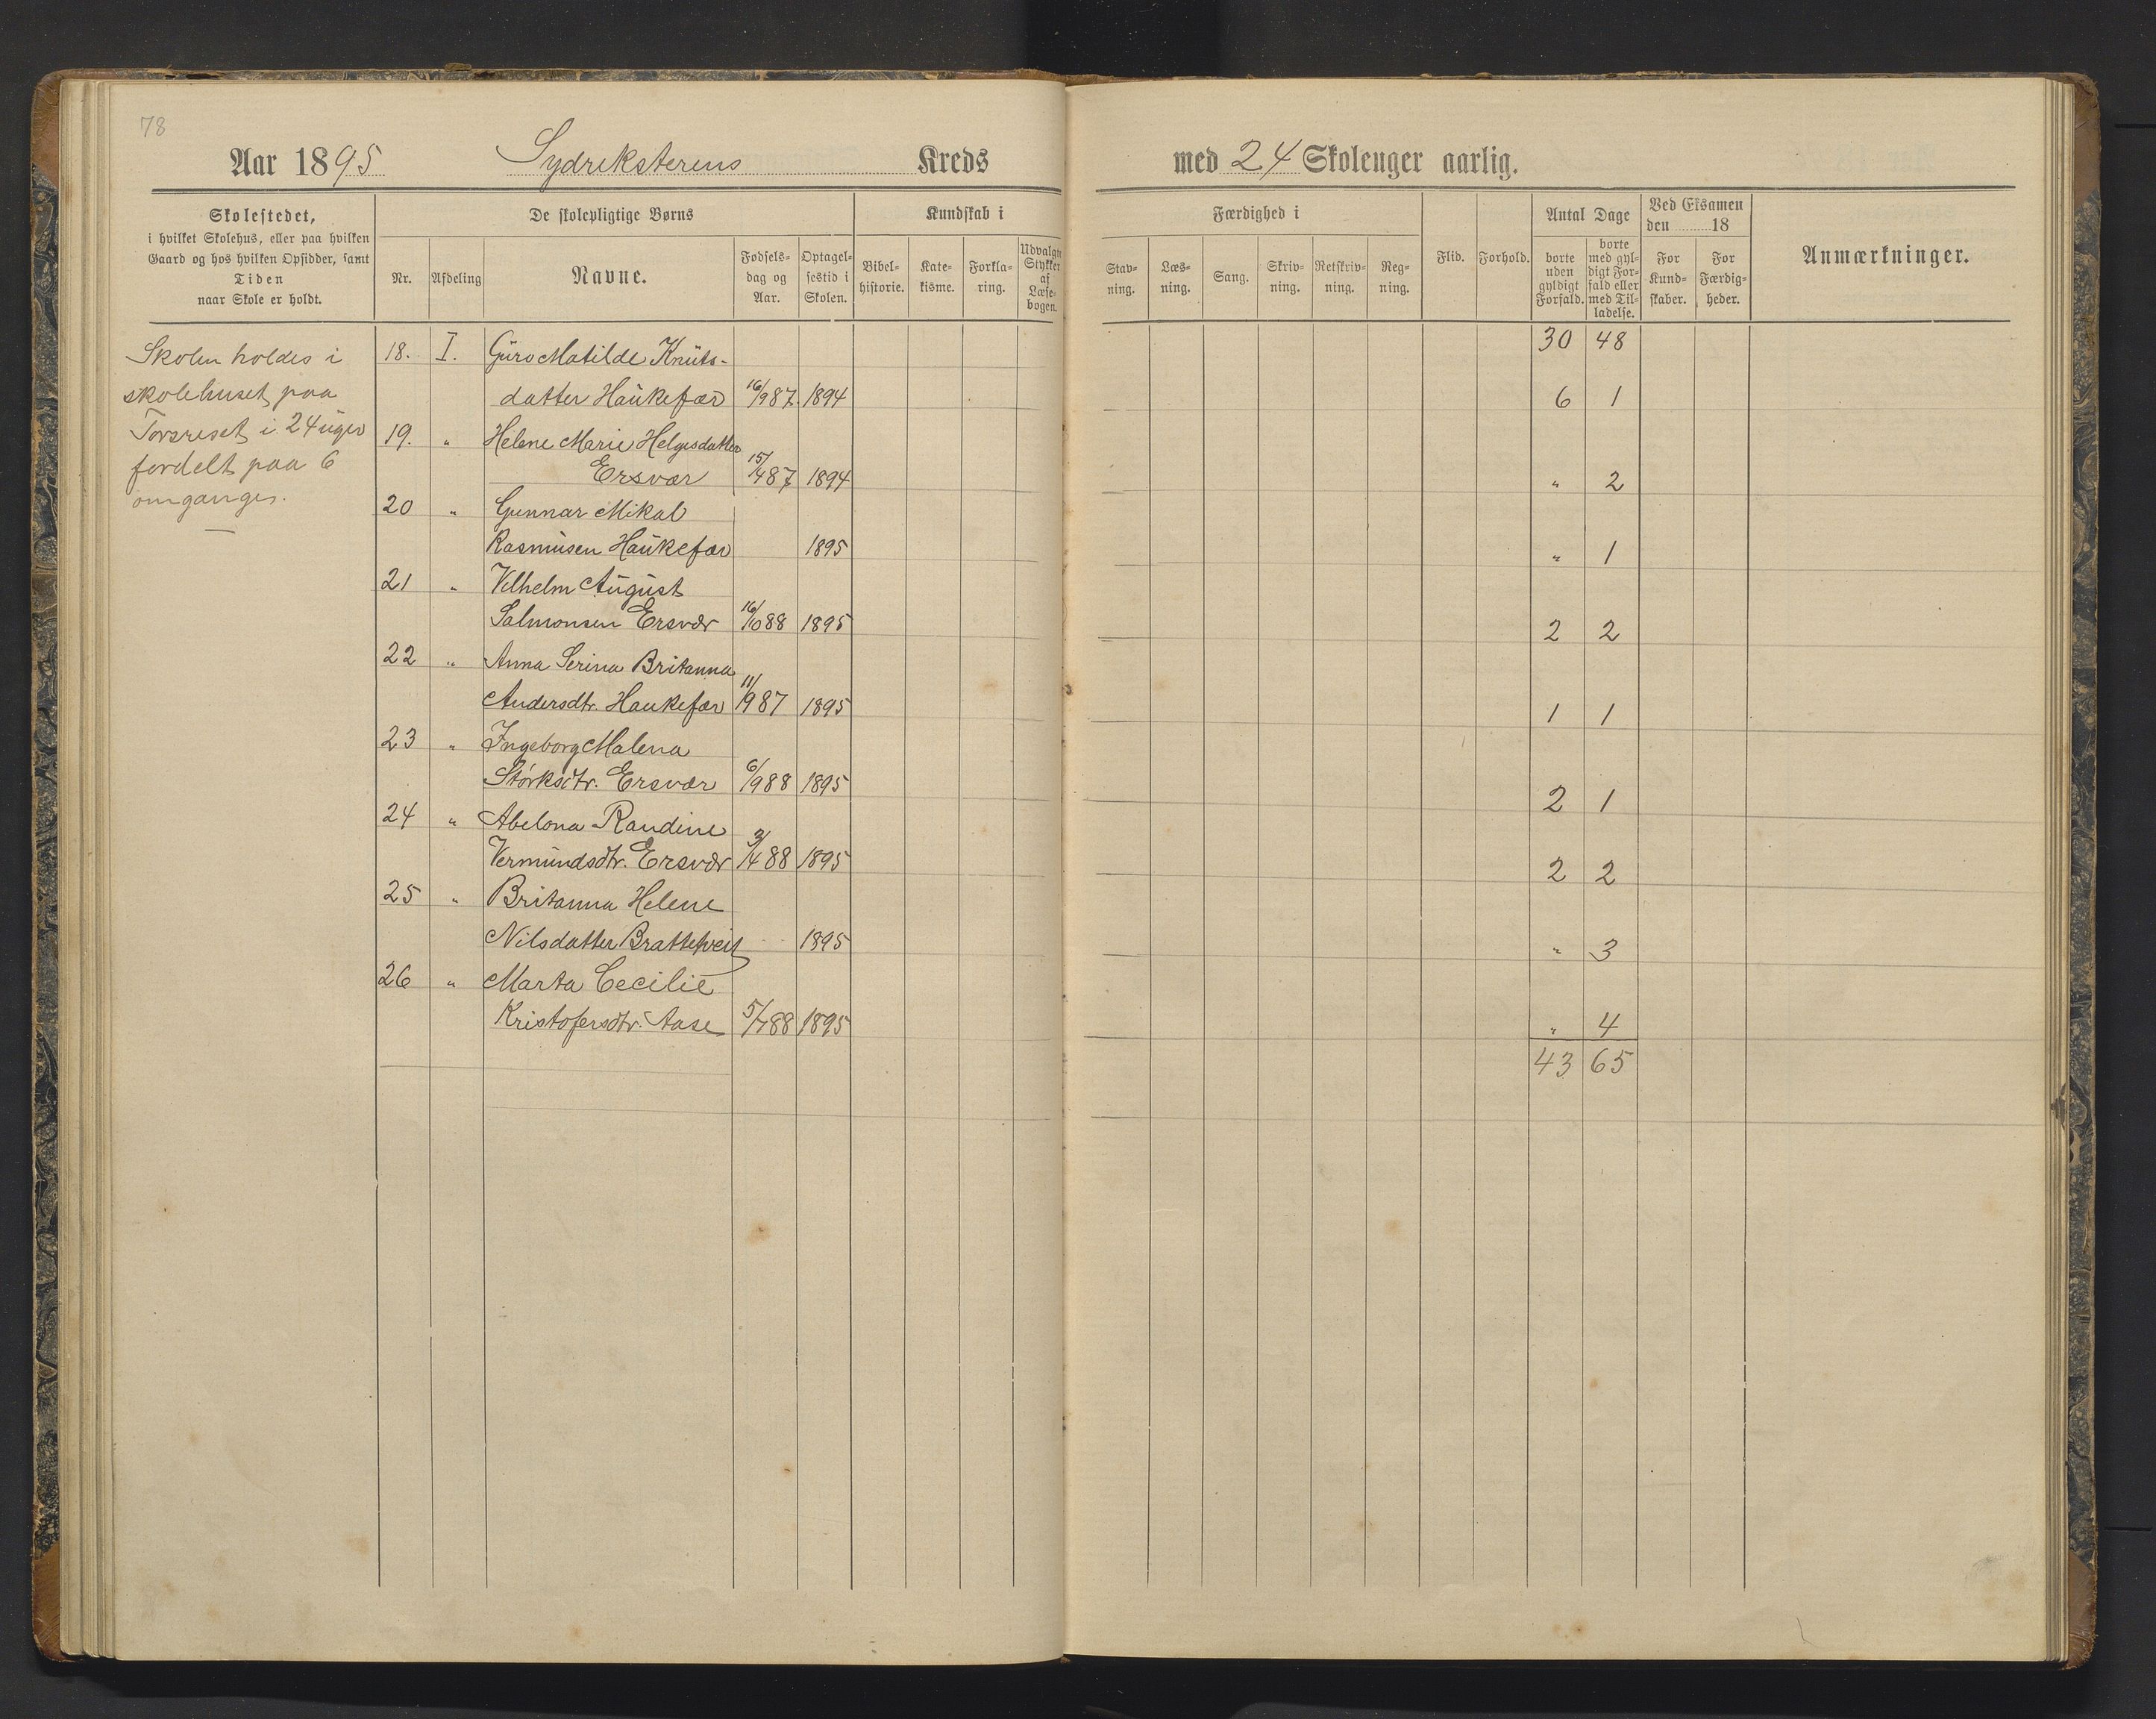 78
Aar 1895 Sydreksterens Kreds med 24 Skoleuger aarlig.
Skolestedet,
i hvilket Skolehus, eller paa hvilken
Gaard og hos hvilken Opsidder, samt
Tiden
naar Skole er holdt.
De skolepligtige Børns
Nr. Afdeling Navne. Fødsels-dag og Aar. Optagel-sestid i Skolen.
Kundskab i
Bibel-historie. Kate-kisme. Forkla-ring. Udvalgte Stykker af Læse-bogen.
Færdighed i
Stav-ning. Læs-ning. Sang. Skriv-ning. Retskriv-ning. Reg-ning.
Flid. Forhold.
Antal Dage
borte uden gyldigt Forfald. borte med gyl-digt For-fald eller med Til-ladelse.
Ved Eksamen
den 18
For Kund-skaber. For Færdig-heder.
Anmærkninger.
Skolen holdes i
skolehuset paa
i 24 uger
fordelt paa 6
omganger.
30 48
18. I. Guro Matilde Knuts-
datter Haukefær 16/9 87. 1894 6 1
19. " Helene Marie Helgesdatter
Ersvær 15/4 87 1894 " 2
20 " Gunnar Mikal
Rasmusen Haukefær 1895 " 1
21 " Vilhelm August
Salmonsen Ersvær 16/10 88 1895 2 2
22 " Anna Serina Britanna
Andersdtr. Haukefær 11/9 87 1895 1 1
23 " Ingeborg Malena
Størksdtr. Ersvær 6/9 88 1895 2 1
24 " Abelona Randine
Vermundsdtr. Ersvær 3/4 88 1895 2 2
25 " Britanna Helene
Nilsdatter Brattetveit 1895 " 3
26 " Marta Cecilie
Kristofersdtr. Aase 5/7 88 1895 " 4
43 65